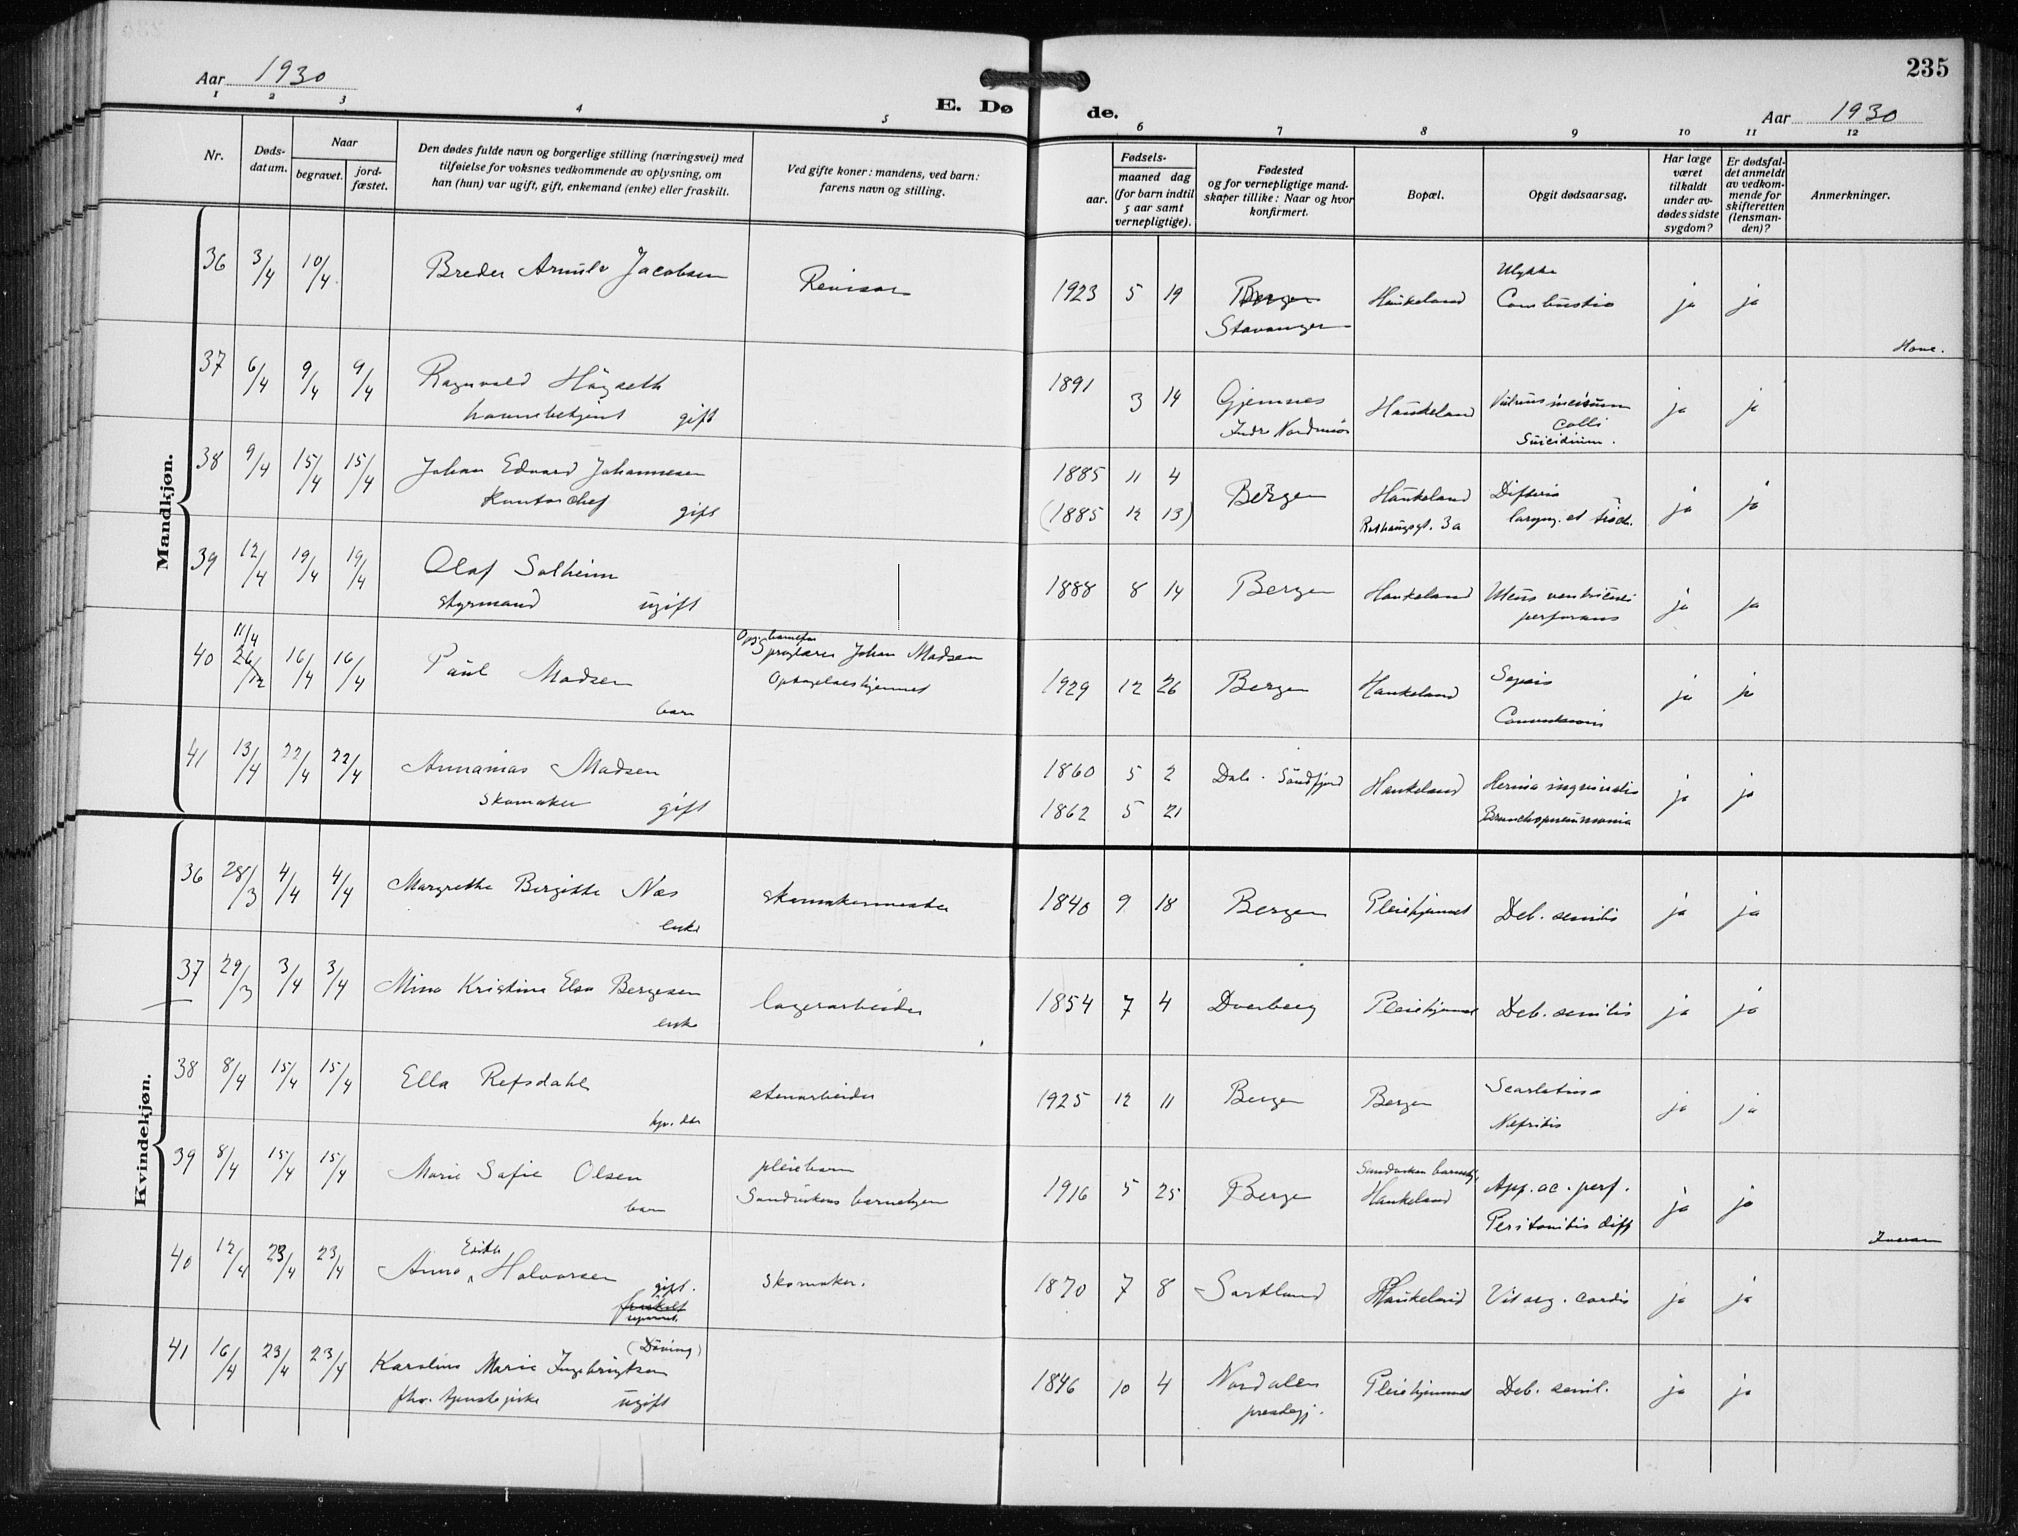 Aar 1930
E. Dø de.
235
Aar 1930
1 2 3 4 5 6 7 8 9 10 11 12
Nr.
Døds-
datum.
Naar
begravet.
jord-
fæstet.
Den dødes fulde navn og borgerlige stilling (næringsvei) med
tilføielse for voksnes vedkommende av oplysning, om
han (hun) var ugift, gift, enkemand (enke) eller fraskilt.
Ved gifte koner: mandens, ved barn:
farens navn og stilling.
Fødsels-
aar.
maaned dag
(for barn indtil
5 aar samt
vernepligtige).
Fødested
og for vernepligtige mand-
skaper tillike: Naar og hvor
konfirmert.
Bopæl.
Opgit dødsaarsag.
Har læge
været
tilkaldt
under av-
dødes sidste
sygdom?
Er dødsfal-
det anmeldt
av vedkom-
mende for
skifteretten
(lensman-
den)?
Anmerkninger.
Mandkjøn.
36 3/4 10/4 Breder Arnulv Jacobsen Revisor 1923 5 19 Bergen Haukeland Ulykke ja ja
Stavanger Combustio
37 6/4 9/4 9/4 Ragnvald Högseth 1891 3 14 Gjemnes Haukeland Vulnus incisum ja ja
havnebetjent gift Indre Nordmör colli
Suicidium.
38 9/4 15/4 15/4 Johan Edvard Johannesen 1885 11 4 Bergen Haukeland Difteria ja ja
Kontorchef gift (1885 12 13) 3a laryng. et trach.
39 12/4 19/4 19/4 Olaf Solheim 1888 8 14 Bergen Haukeland Ulcus ventriculi ja ja
styrmand ugift perforans
11/4
40 26/12 16/4 16/4 Paul Madsen Opg. barnefar Sproglærer Johan Madsen 1929 12 26 Bergen Haukeland Sepsis ja ja
barn Optagelseshjemmet
41 13/4 22/4 22/4 Annanias Madsen 1860 5 2 Dale. Söndfjord Haukeland Hernia inguinalis ja ja
skomaker gift 1862 5 21 Bronchopneumonia
Kvindekjøn.
36 28/3 4/4 4/4 Margrethe Bergitte Næs skomakermester 1840 9 18 Bergen Pleiehjemmet Deb. senilis ja ja
enke
37 29/3 3/4 3/4 Mina Kristine Elsa Bergesen lagerarbeider 1854 7 4 Dverberg Pleiehjemmet Deb. senilis ja ja
enke
38 8/4 15/4 15/4 Ella Refsdahl stenarbeider 1925 12 11 Bergen Bergen Scarlatina ja ja
Nefritis
39 8/4 15/4 15/4 Marie Sofie Olsen pleiebarn 1916 5 25 Bergen Sandvikens barnehj. App. ac. perf. ja ja
barn Sandvikens barnehjem Haukeland Peritonitis diff
40 12/4 23/4 23/4 Anna Halvorsen gift. skomaker. 1870 7 8 Sortland Haukeland Vit. org. cordis ja ja
fraskilt
separert.
41 16/4 23/4 23/4 Karoline Marie Ingebrigtsen (Döving) 1846 10 4 Nordalen Pleiehjemmet Deb. senil. ja ja
fhv. tjenestepike ugift prestegj.